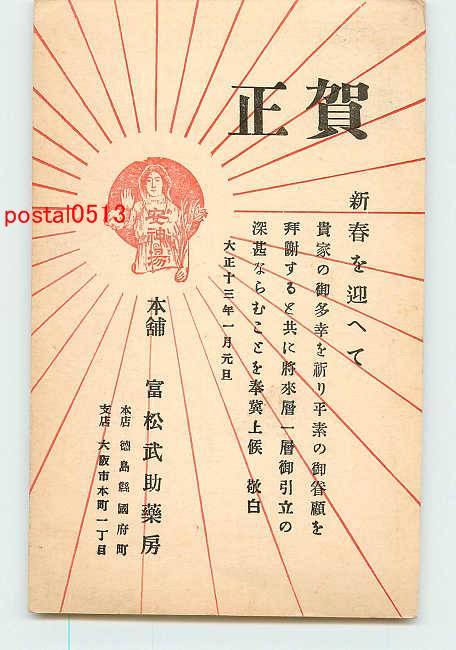 賀正
新春を迎へて
貴家の御多幸を祈り平素の御眷顧を
拜謝すると共に將來層一層御引立の
深甚ならむことを奉冀上候　敬白
大正十三年一月元旦
安神湯
本舖　富松武助藥房
本店　徳島縣國府町
支店　大阪市本町一丁目
postal0513